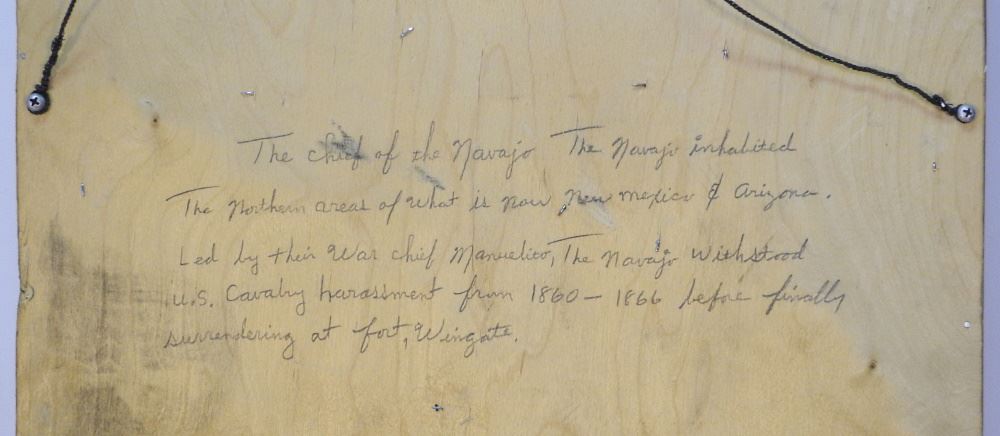 The chief of the Navajo The Navajo inhabited
The Northern areas of what is now New Mexico & Arizona.
Led by their War chief Manuelito, The Navajo Withstood
U.S. Cavalry harassment from 1860 – 1866 before finally
surrendering at fort, Wingate.